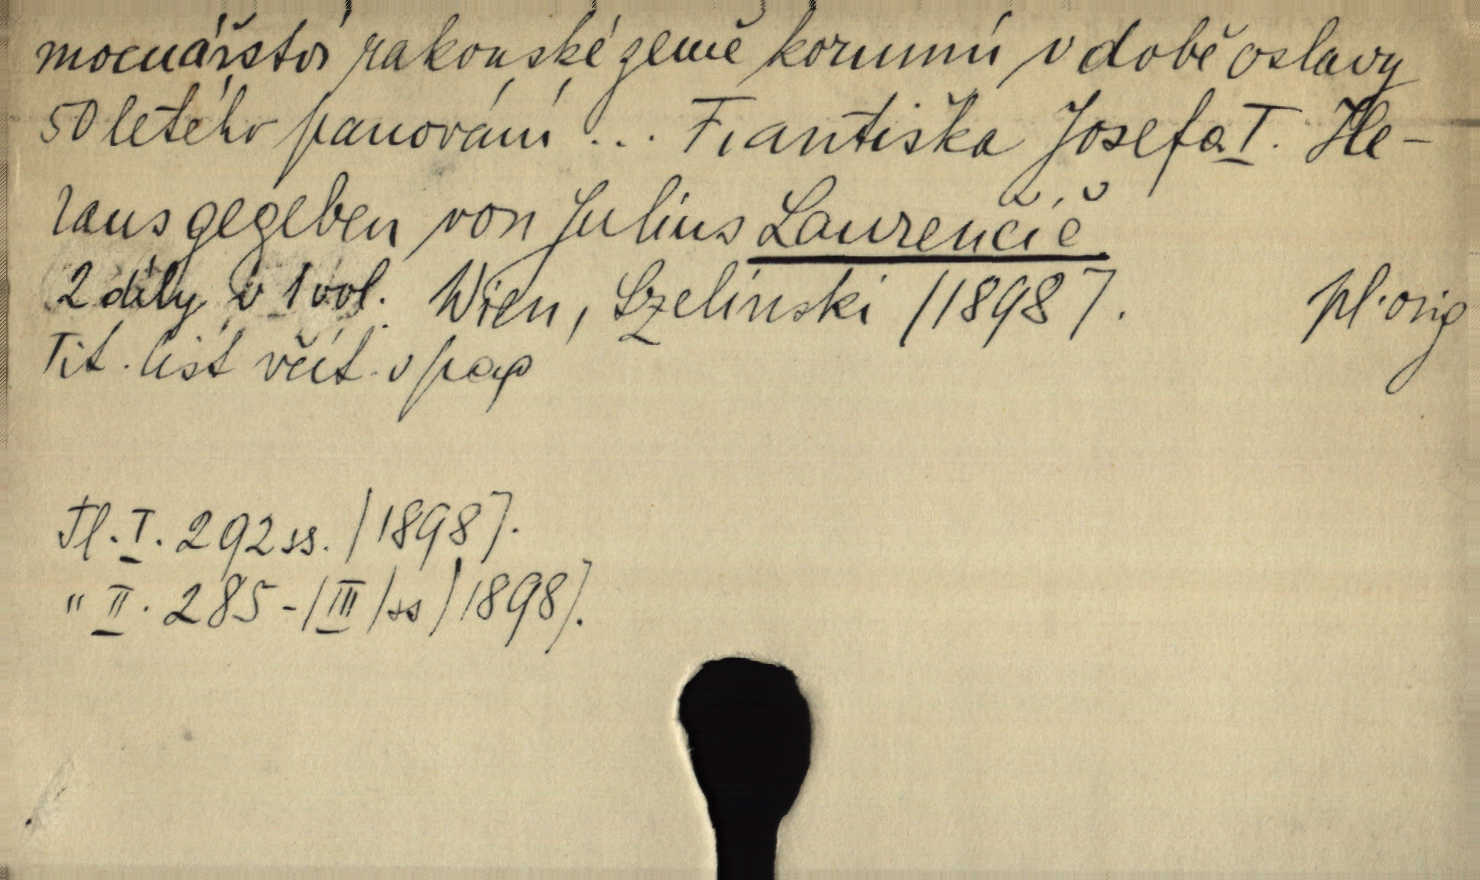 mocnářství rakouské země korunní v době oslavy
50letého panování ... Františka Josefa I. He-
rausgegeben von Julius Laurenčič
2 díly v 1 vol. Wien, Szelinski /1898/. pl. orig
Tit. list včít. v pag
Tl. I. 292 ss. /1898/.
" II. 285-/III/ss /1898/.